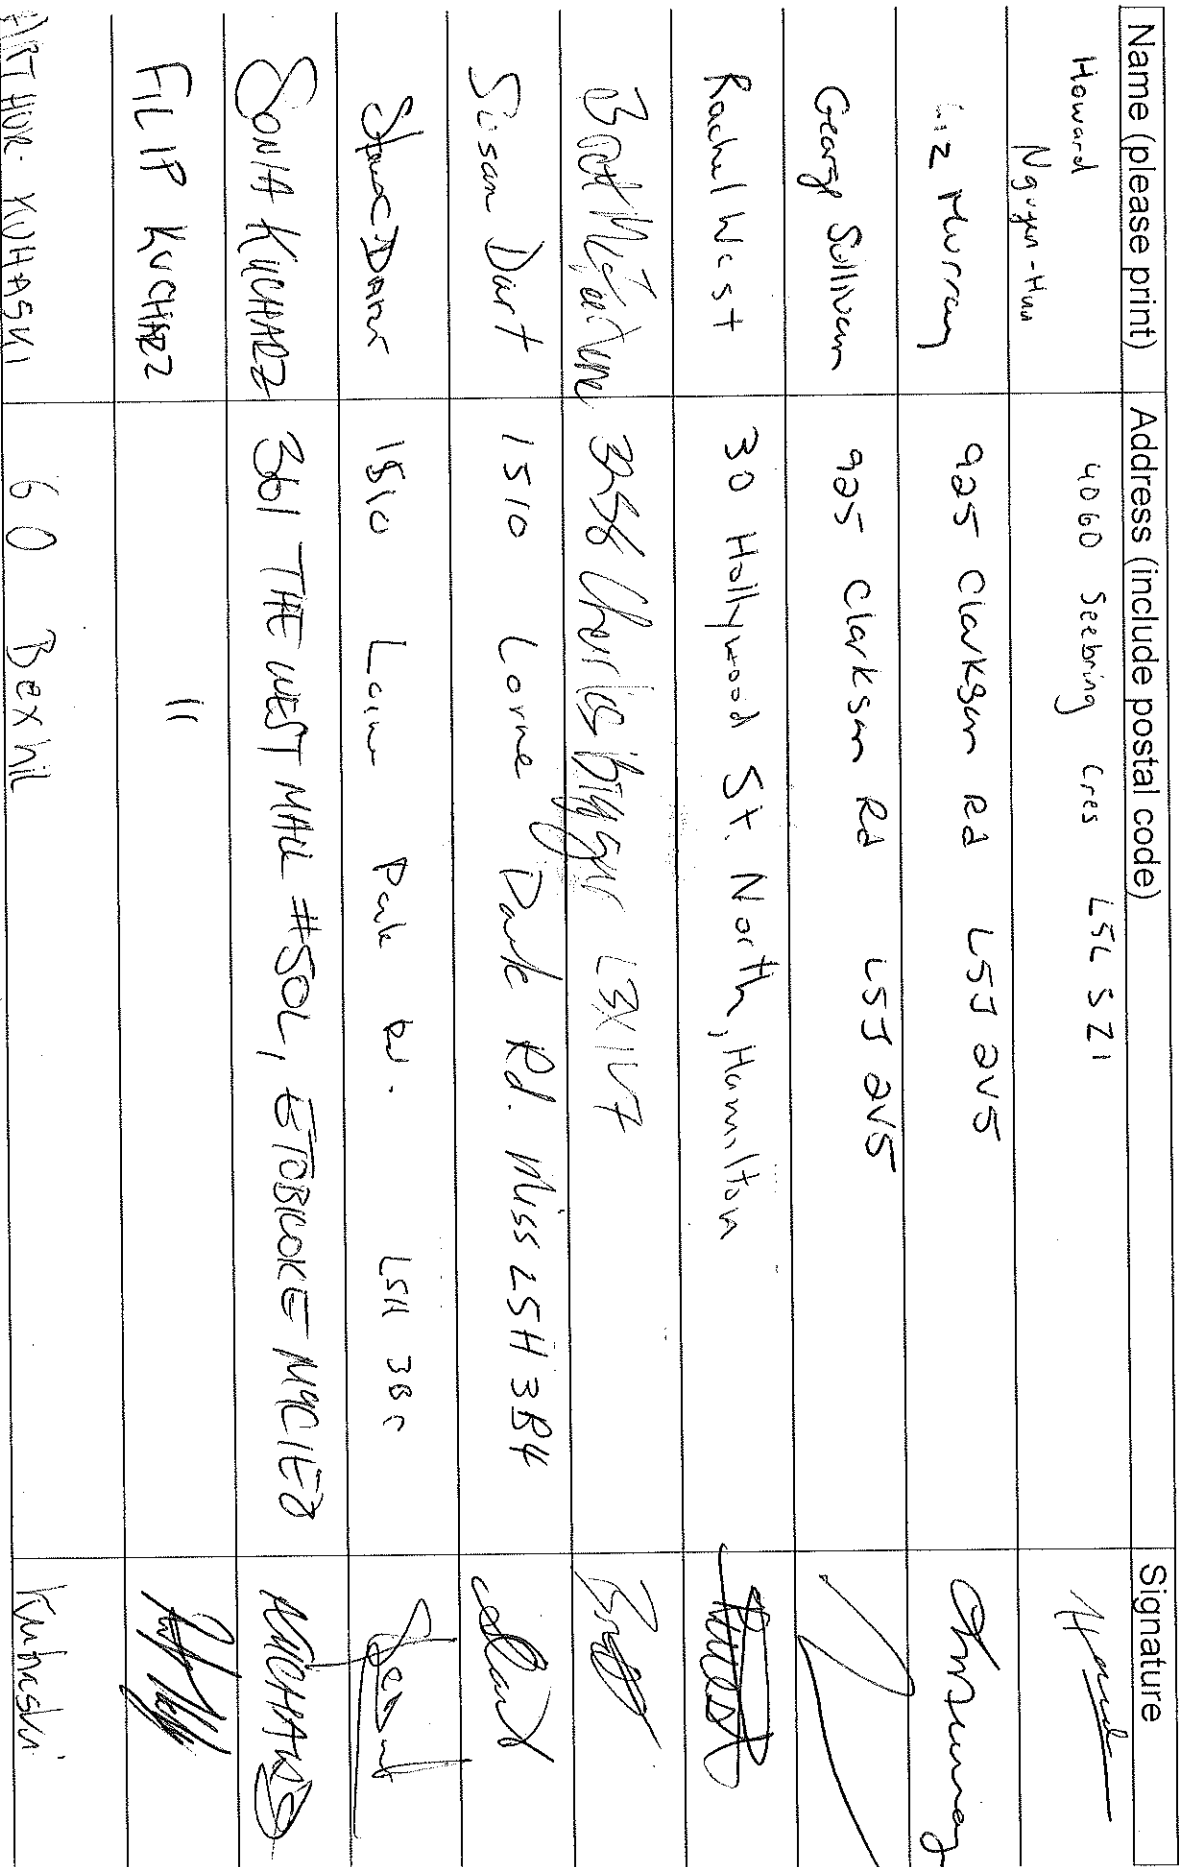 Name (please print) Address (include postal code) Signature
Howard
Nguyen-Huu 4060 Seebring Cres L5L 3Z1
Liz Murray 925 Clarkson Rd L5J 2V5
George Sullivan 925 Clarkson Rd L5J 2V5
Rachel West 30 Hollywood St. North, Hamilton
3256 Charles
Susan Dart 1510 Lorne Park Rd. Miss L5H 3B4
1510 Park Rd. L5H
SONIA KUCHARZ 361 THE WEST MALL #502, ETOBICOKE M9C1E8
FILIP KUCHARZ "
ARTHUR KUHASKI 60 Bexhil Kuhaski